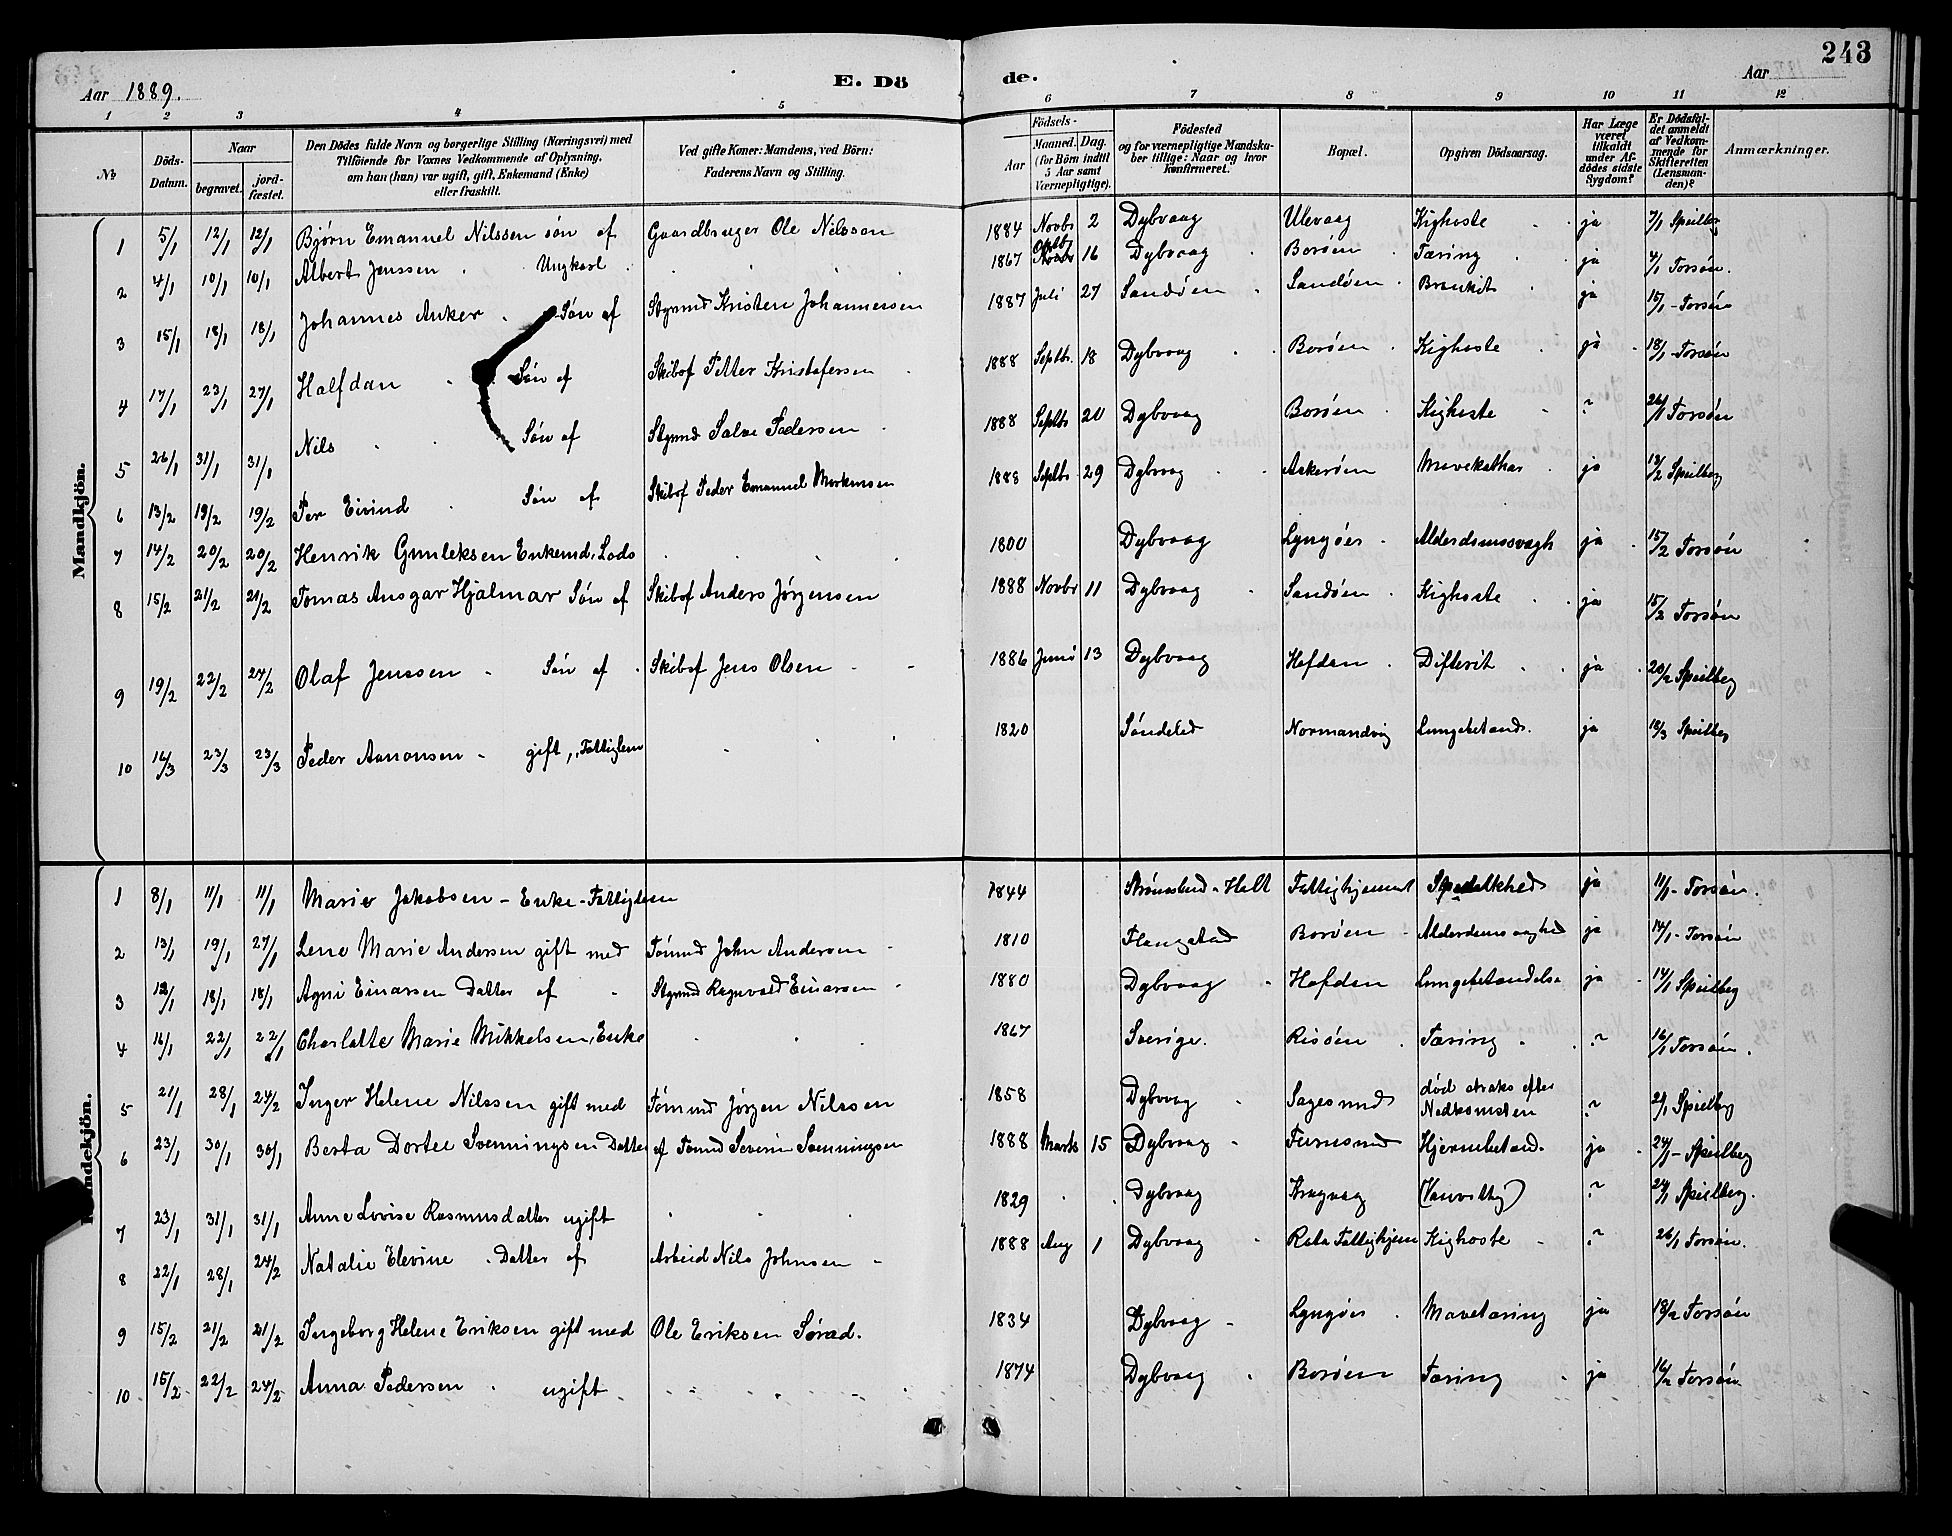 243
Aar 1889.
E. Dö
de.
Aar
1 2 3 4 5 6 7 8 9 10 11 12
№
Döds-Datum.
Naar
begravet.
jord-fæstet.
Den Dödes fulde Navn og borgerlige Stilling (Næringsvei) med
Tilföiende for Voxnes Vedkommende af Oplysning,
om han (hun) var ugift, gift, Enkemand (Enke)
eller fraskilt.
Ved gifte Koner: Mandens, ved Börn:
Faderens Navn og Stilling.
Födsels-
Aar
Maaned. Dag.
(for Börn indtil
5 Aar samt
Værnepligtige).
Födested
og for værnepligtige Mandska-
ber tillige: Naar og hvor
konfirmeret.
Bopæl.
Opgiven Dödsaarsag.
Har Læge
været
tilkaldt
under Af-
dödes sidste
Sygdom?
Er Dödsfal-
det anmeldt
af Vedkom-
mende for
Skifteretten
(Lensman-
den)?
Anmærkninger.
Mandkjön.
1 5/1 12/1 12/1 Bjørn Emanuel Nilssen søn af Gaardbruger Ole Nilsson 1884 Novbr 2 Dybvaag Ulevaag Kighoste ja 7/1 Spielbg
2 4/1 10/1 10/1 Albert Jenssen Ungkarl 1867 16 Dybvaag Borøen Tæring ja 4/1 Torsøn.
3 15/1 18/1 18/1 Johannes Anker Søn af Styrmd Kristen Johannessen 1887 Juli 27 Sandøen Sandøen Bronkit ja 15/1 - Torsøn
4 17/1 23/1 27/1 Halfdan Søn af Skibsf Petter Kristofersen 1888 Septbr. 18 Dybvaag Borøen Kighoste ja 18/1 - Torsøn
5 26/1 31/1 31/1 Nils Søn af Styrmd Salve Pedersen 1888 Septbr 20 Dybvaag Borøen Kighoste ? 26/1 Torsøn
6 13/2 19/2 19/2 Per Eivind Søn af Skibsf Peder Emanuel Markussen 1888 Septbr 29 Dybvaag Askerøen Mavekathar ja 13/2 Spielberg
7 14/2 20/2 20/2 Henrik Gunleksen Enkemd, Lods 1800 Dybvaag Lyngøer Alderdomssvagh ja 15/2 Torsøn
8 15/2 21/2 21/2 Tomas Ansgar Hjalmar Søn af Skibsf Anders Jørgensen 1888 Novbr 11 Dybvaag Sandøen Kighoste ja 15/2 Torsøn
9 19/2 22/2 24/2 Olaf Jenssen Søn af Skibsf Jens Olsen 1886 Juni 13 Dybvaag Hofden Difterit ja 20/2 Spielberg
10 16/3 23/3 23/3 Peder Aanonsen gift, Fattiglem 1820 Søndeled Normandvig Lungebetænds. ja 18/3 Spielberg
Kvindekjön.
1 8/1 11/1 11/1 Marie Jakobsen - Enke - Fattiglem 1844 Holt Fattighjemmet Spedalskhed ja 11/1 - Torsøn.
2 13/1 19/1 27/1 Lene Marie Andersen gift med Tømmd John Andersen 1810 Flangstad Borøen Alderdomssvaghed ja 14/1 - Torsøn
3 12/1 18/1 18/1 Agni Einarsen Datter af Styrmd Ragnvald Einarsen 1880 Dybvaag Hofden Lungebetændelse ja 14/1 Spielberg
4 16/1 22/1 22/1 Charlotte Marie Mikkelsen, Enke 1867 Sverige. Risøen Tæring ? 16/1 Torsøn.
5 21/1 28/1 24/2 Inger Helene Nilssen gift med Tømmd Jørgen Nilssen 1858 Dybvaag Sagesund død straks efter
Nedkomsten ? 21/1 Spielberg
6 23/1 30/1 30/1 Berta Dortee Svenningsen Datter af Tømmd Severin Svenningsen 1888 Marts 15 Dybvaag Furusund Hjernebetænd. ja 24/1 - Spielberg
7 23/1 31/1 31/1 Anne Lovise Rasmusdatter ugift 1829 Dybvaag Kragvaag (Vanvittig) ? 24/1 Spielberg.
8 22/1 28/1 24/2 Natalie Elevine Datter af Arbeid Nils Johnsen 1888 Aug 1 Dybvaag Fattighjem Kighoste ? 26/1 Torsøn.
9 15/2 21/2 21/2 Ingeborg Helene Eriksen gift med Ole Eriksen 1834 Dybvaag Lyngøer Mavetæring ja 18/2 Torsøn
10 15/2 22/2 24/2 Anna Pedersen ugift 1874 Dybvaag Borøen Tæring ja 16/2 Torsøn